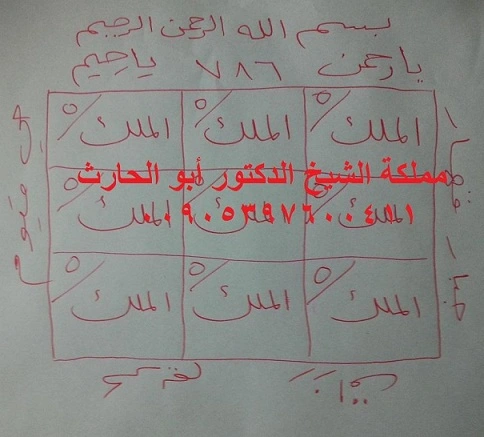 بسم الله الرحمن الرحيم
يارحمن ٧٨٦ يارحيم
الملك ٥ الملك ٥ الملك ٥
مملكة الشيخ الدكتور أبو الحارث
الملك ٥ الملك ٥ الملك ٥
٠٠٩٠٥٣٩٧٦٠٠٤١١
الملك ٥ الملك ٥ الملك ٥